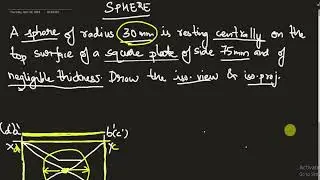 SPHERE
A sphere of radius 30mm is resting centrally on the
top surface of a square plate of side 75mm and of
negligible thickness. Draw the iso. view & iso. proj.
b'(c')
x
Activate